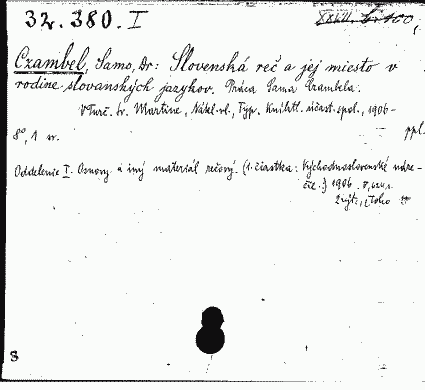 32.380.I
XXIII. b. 100,
Czambel, Samo, Dr: Slovenská reč a jej miesto v
rodine slovanských jazykov. Práca Sama Czambela.
V Turč. Sv. Martine, Nákl. vl., Typ. Kníhtl. účast. spol., 1906-
8°, 1 ppl.
Oddelenie I. Osnovy a iný materiál rečový. (1. čiastka: Východnoslovenské náre-
čie.) 1906
8